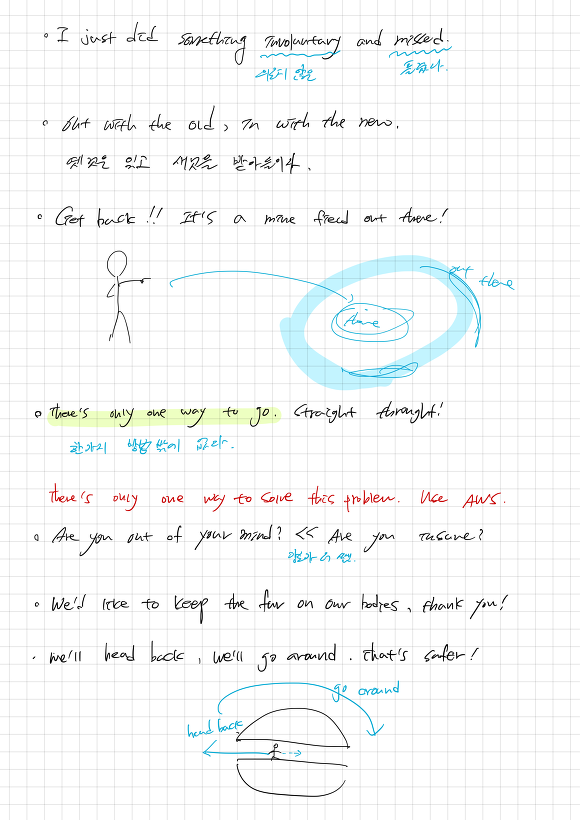 • I just did something involuntary and missed.
의도치 않은
• Out with the old, in with the new.
옛것은 잊고 새것을 받아들이다.
• Get back!! It's a mine field out there!
there
out there
• There's only one way to go. Straight throught!
한가지 방법 밖에 없다.
There's only one way to solve this problem. Use AWS.
• Are you out of your mind? << Are you insane?
• We'd like to keep the fur on our bodies, thank you!
• We'll head back, we'll go around. That's safer!
go around
head back